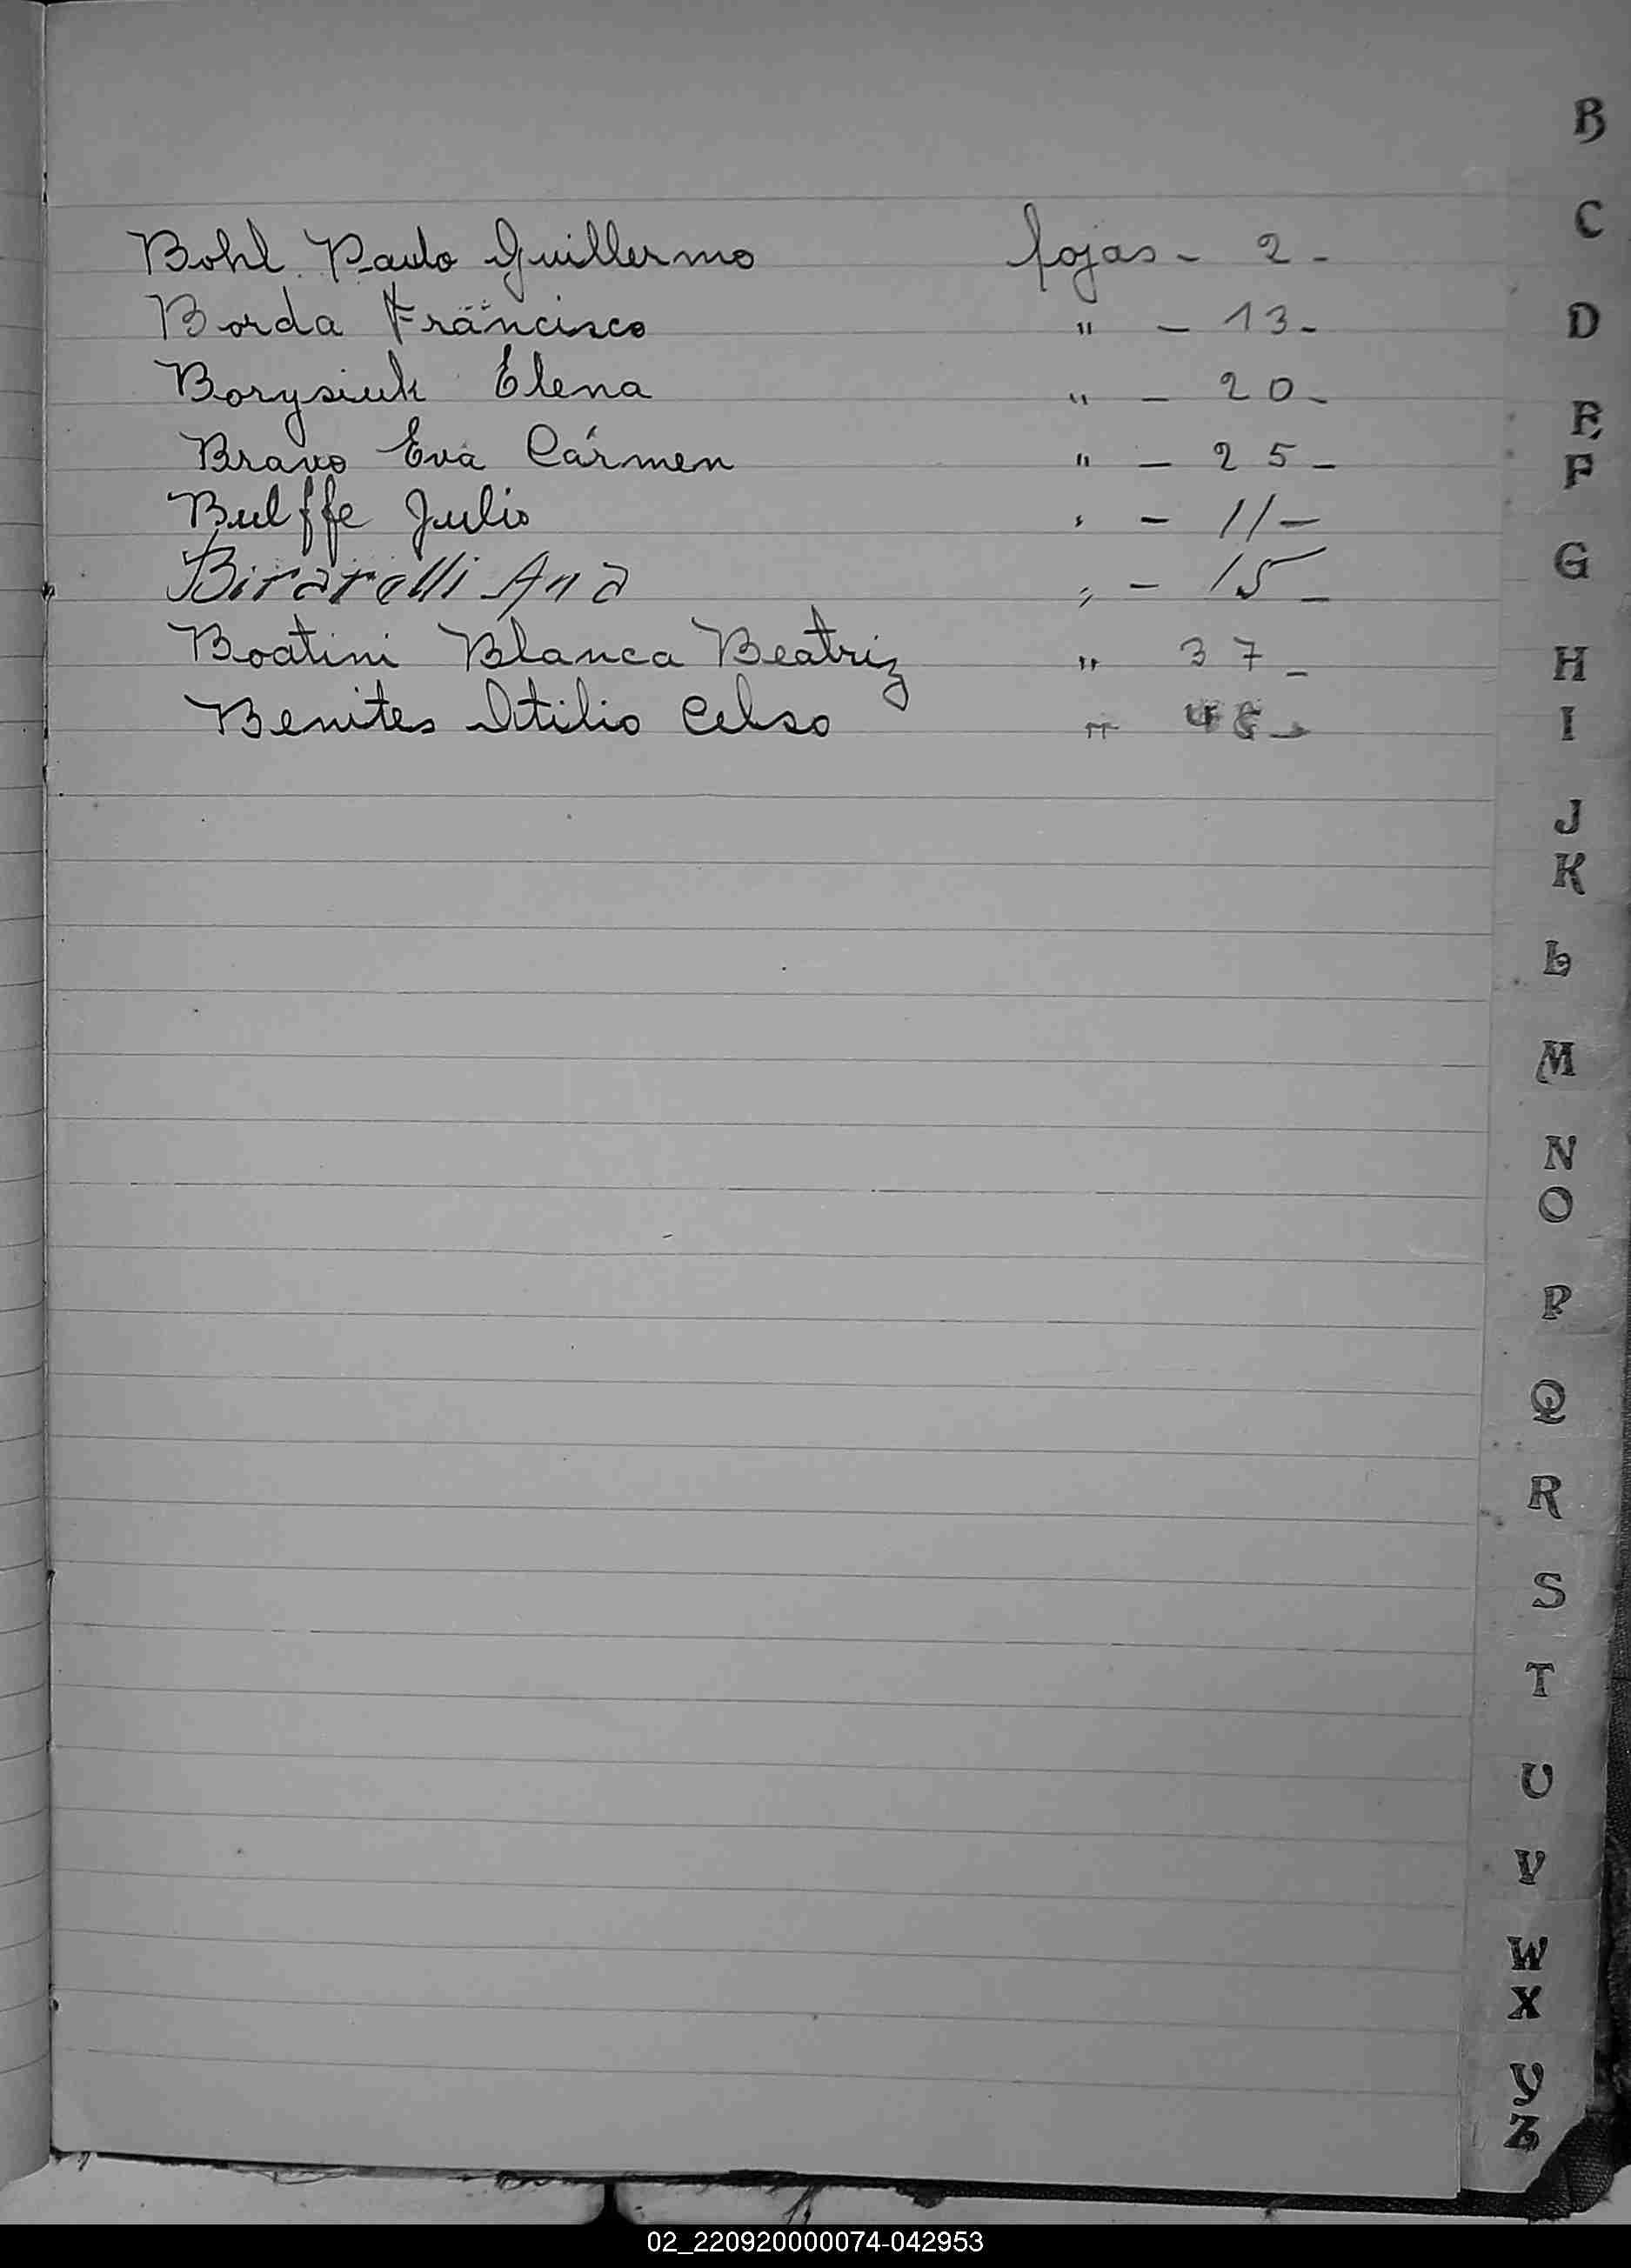 Bohl Paulo Guillermo fojas - 2 -
Borda Francisco " - 13 -
Borysiuk Elena " - 20 -
Bravo Eva Cármen " - 25 -
Bulffe Julio " - 11 -
Birarelli Ana " - 15 -
Boatini Blanca Beatriz " 37 -
Benites Atilio Celso "
B
C
D
E
F
G
H
I
J
K
L
M
N
O
P
Q
R
S
T
U
V
W
X
Y
Z
02_220920000074-042953